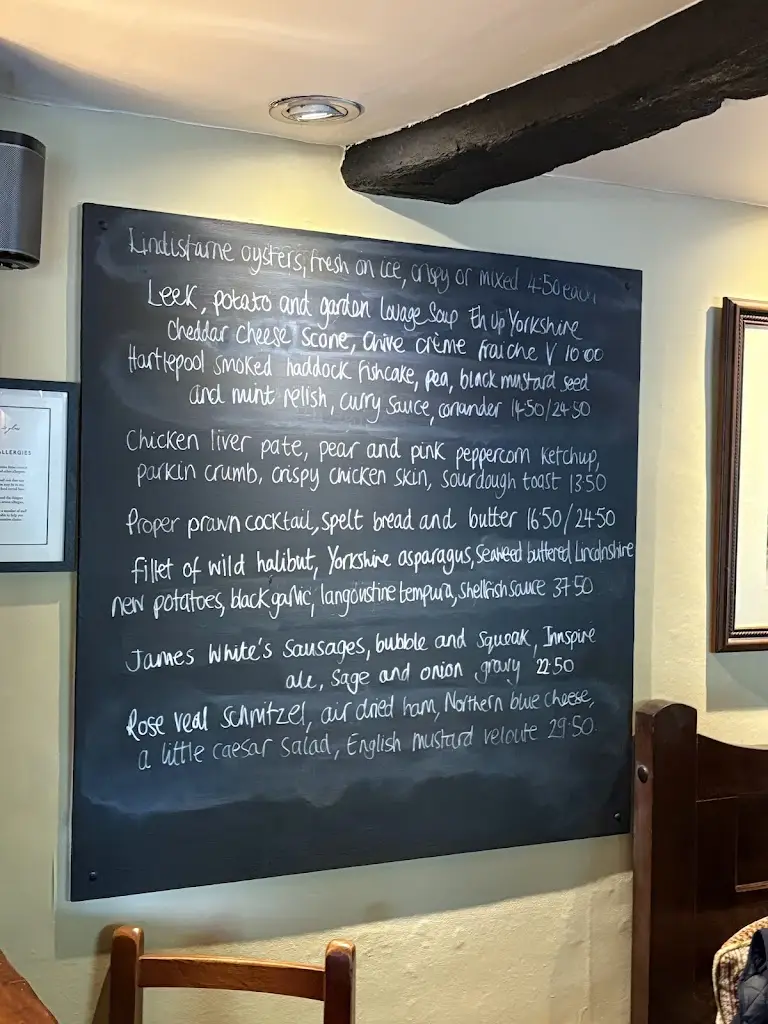 Lindisfarne oysters, fresh on ice, crispy or mixed 4.50 each
Leek, potato and garden lovage Soup Eh Up Yorkshire
cheddar cheese scone, chive crème fraiche V 10.00
Hartlepool smoked haddock fishcake, pea, black mustard seed
and mint relish, curry sauce, coriander 14.50/24.50
Chicken liver pate, pear and pink peppercorn ketchup,
parkin crumb, crispy chicken skin, sourdough toast 13.50
Proper prawn cocktail, spelt bread and butter 16.50/24.50
fillet of wild halibut, Yorkshire asparagus, Seaweed buttered Lincolnshire
new potatoes, black garlic, langoustine tempura, shellfish sauce 37.50
James White's Sausages, bubble and squeak, Innspire
ale, sage and onion gravy 22.50
Rose veal schnitzel, air dried ham, Northern blue cheese,
a little caesar salad, English mustard veloute 29.50
ALLERGIES